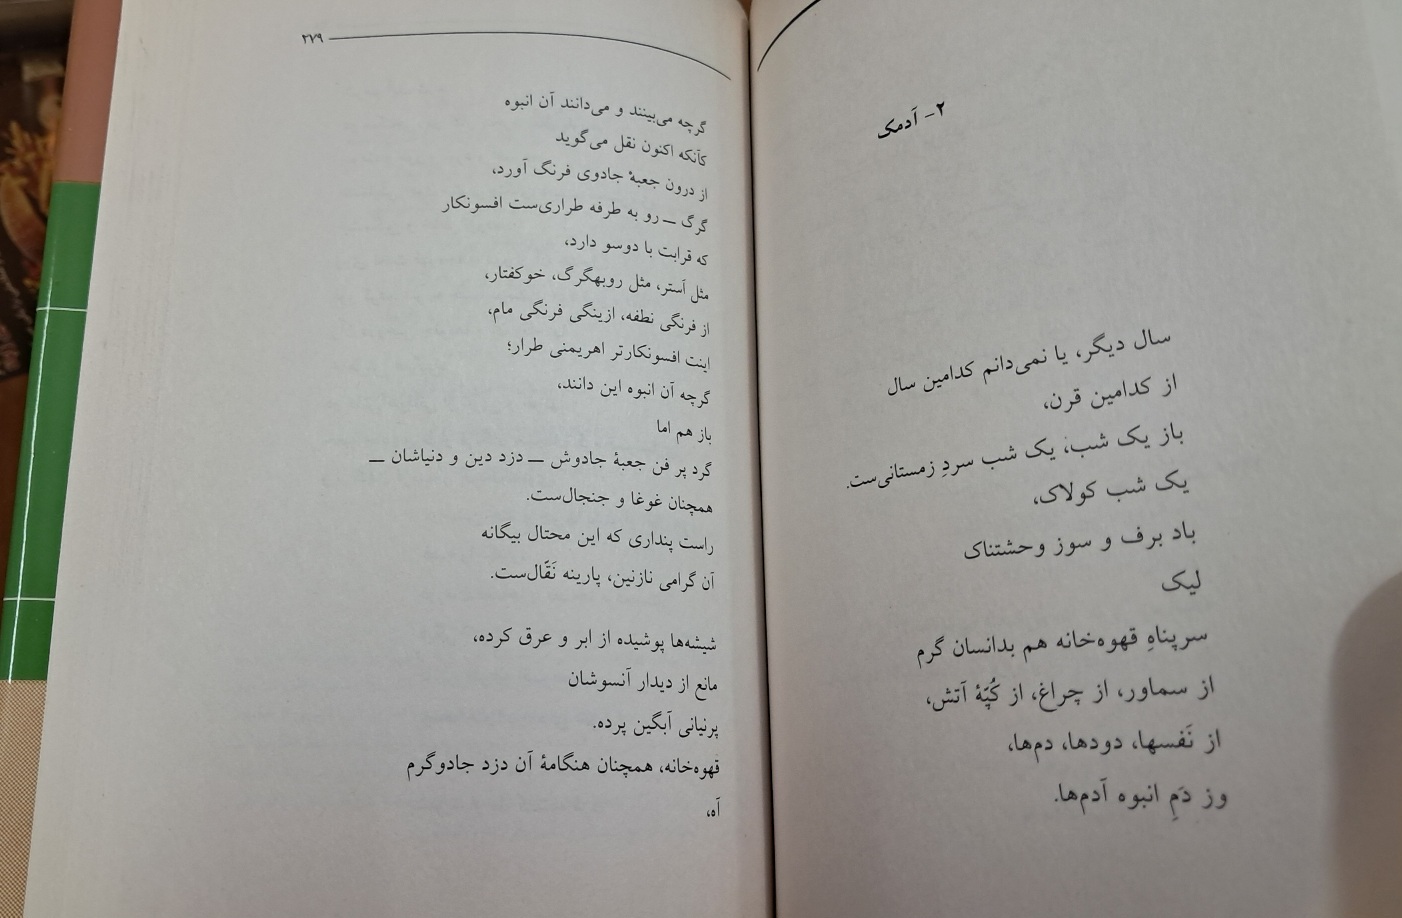 ۲- آدمک
سال دیگر، یا نمی‌دانم کدامین سال
از کدامین قرن،
باز یک شب، یک شب سردِ زمستانی‌ست.
یک شب کولاک،
باد برف و سوز وحشتناک
لیک
سرپناهِ قهوه‌خانه هم بدانسان گرم
از سماور، از چراغ، از کُپّهٔ آتش،
از نَفسها، دودها، دم‌ها،
وز دَمِ انبوه آدم‌ها.
۲۷۹
گرچه می‌بینند و می‌دانند آن انبوه
کآنکه اکنون نقل می‌گوید
از درون جعبهٔ جادوی فرنگ آورد،
گرگ ــ رو به طرفه طراری‌ست افسونکار
که قرابت با دوسو دارد،
مثل اَستر، مثل روبهگرگ، خوکفتار،
از فرنگی نطفه، ازینگی فرنگی مام،
اینت افسونکارتر اهریمنی طرار؛
گرچه آن انبوه این دانند،
باز هم اما
گرد پر فن جعبهٔ جادوش ــ دزد دین و دنیاشان ــ
همچنان غوغا و جنجال‌ست.
راست پنداری که این محتال بیگانه
آن گرامی نازنین، پارینه نَقّال‌ست.
شیشه‌ها پوشیده از ابر و عرق کرده،
مانع از دیدار آنسوشان
پرنیانی آبگین پرده.
قهوه‌خانه، همچنان هنگامهٔ آن دزد جادوگرم
آه،